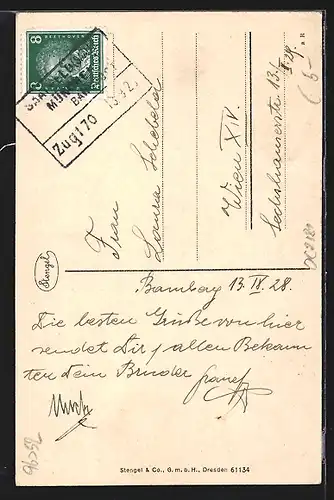 BEETHOVEN
8
Deutsches Reich
MÜN
BAH
Zug 170
Frau
Wien XIV.
Sechshauserstr 13.
Stengel
Bamberg 13. IX. 28.
Die besten Grüße von hier
sendet Dir, allen Bekann
ten Dein Bruder
Stengel & Co., G. m. b. H., Dresden 61134